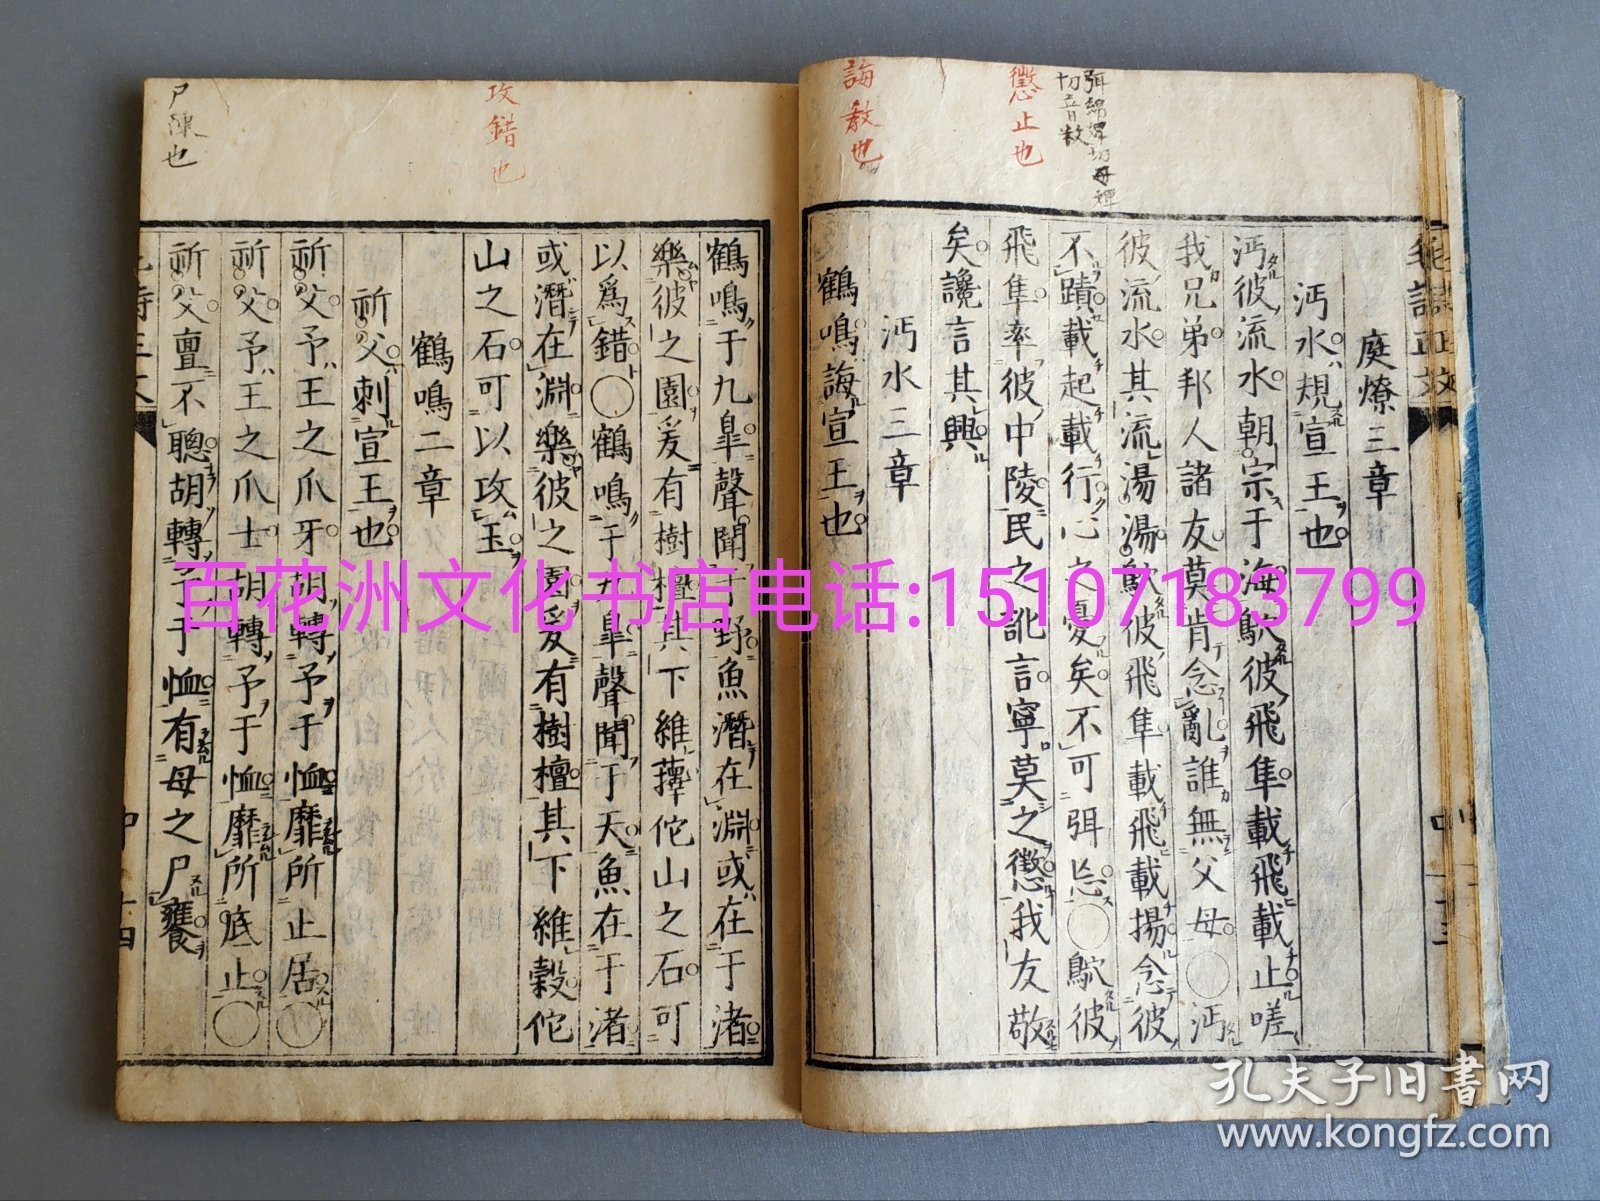 弭綿婢切
懲止也
誨教也
庭燎三章
沔水規宣王也
沔彼流水朝宗于海鴥彼飛隼載飛載止嗟
我兄弟邦人諸友莫肯念亂誰無父母〇沔
彼流水其流湯湯鴥彼飛隼載飛載揚念彼
不蹟載起載行心之憂矣不可弭忘〇鴥彼
飛隼率彼中陵民之訛言寧莫之懲我友敬
矣讒言其興
沔水三章
鶴鳴誨宣王也
攻錯也
尸陳也
鶴鳴于九皐聲聞于野魚潛在淵或在于渚
樂彼之園爰有樹檀其下維蘀佗山之石可
以爲錯〇鶴鳴于九皐聲聞于天魚在于渚
或潛在淵樂彼之園爰有樹檀其下維穀佗
山之石可以攻玉
鶴鳴二章
祈父刺宣王也
祈父予王之爪牙胡轉予于恤靡所止居〇
祈父予王之爪士胡轉予于恤靡所底止〇
祈父亶不聰胡轉予于恤有母之尸饔
百花洲文化书店电话:15107183799
孔夫子旧書网
www.kongfz.com